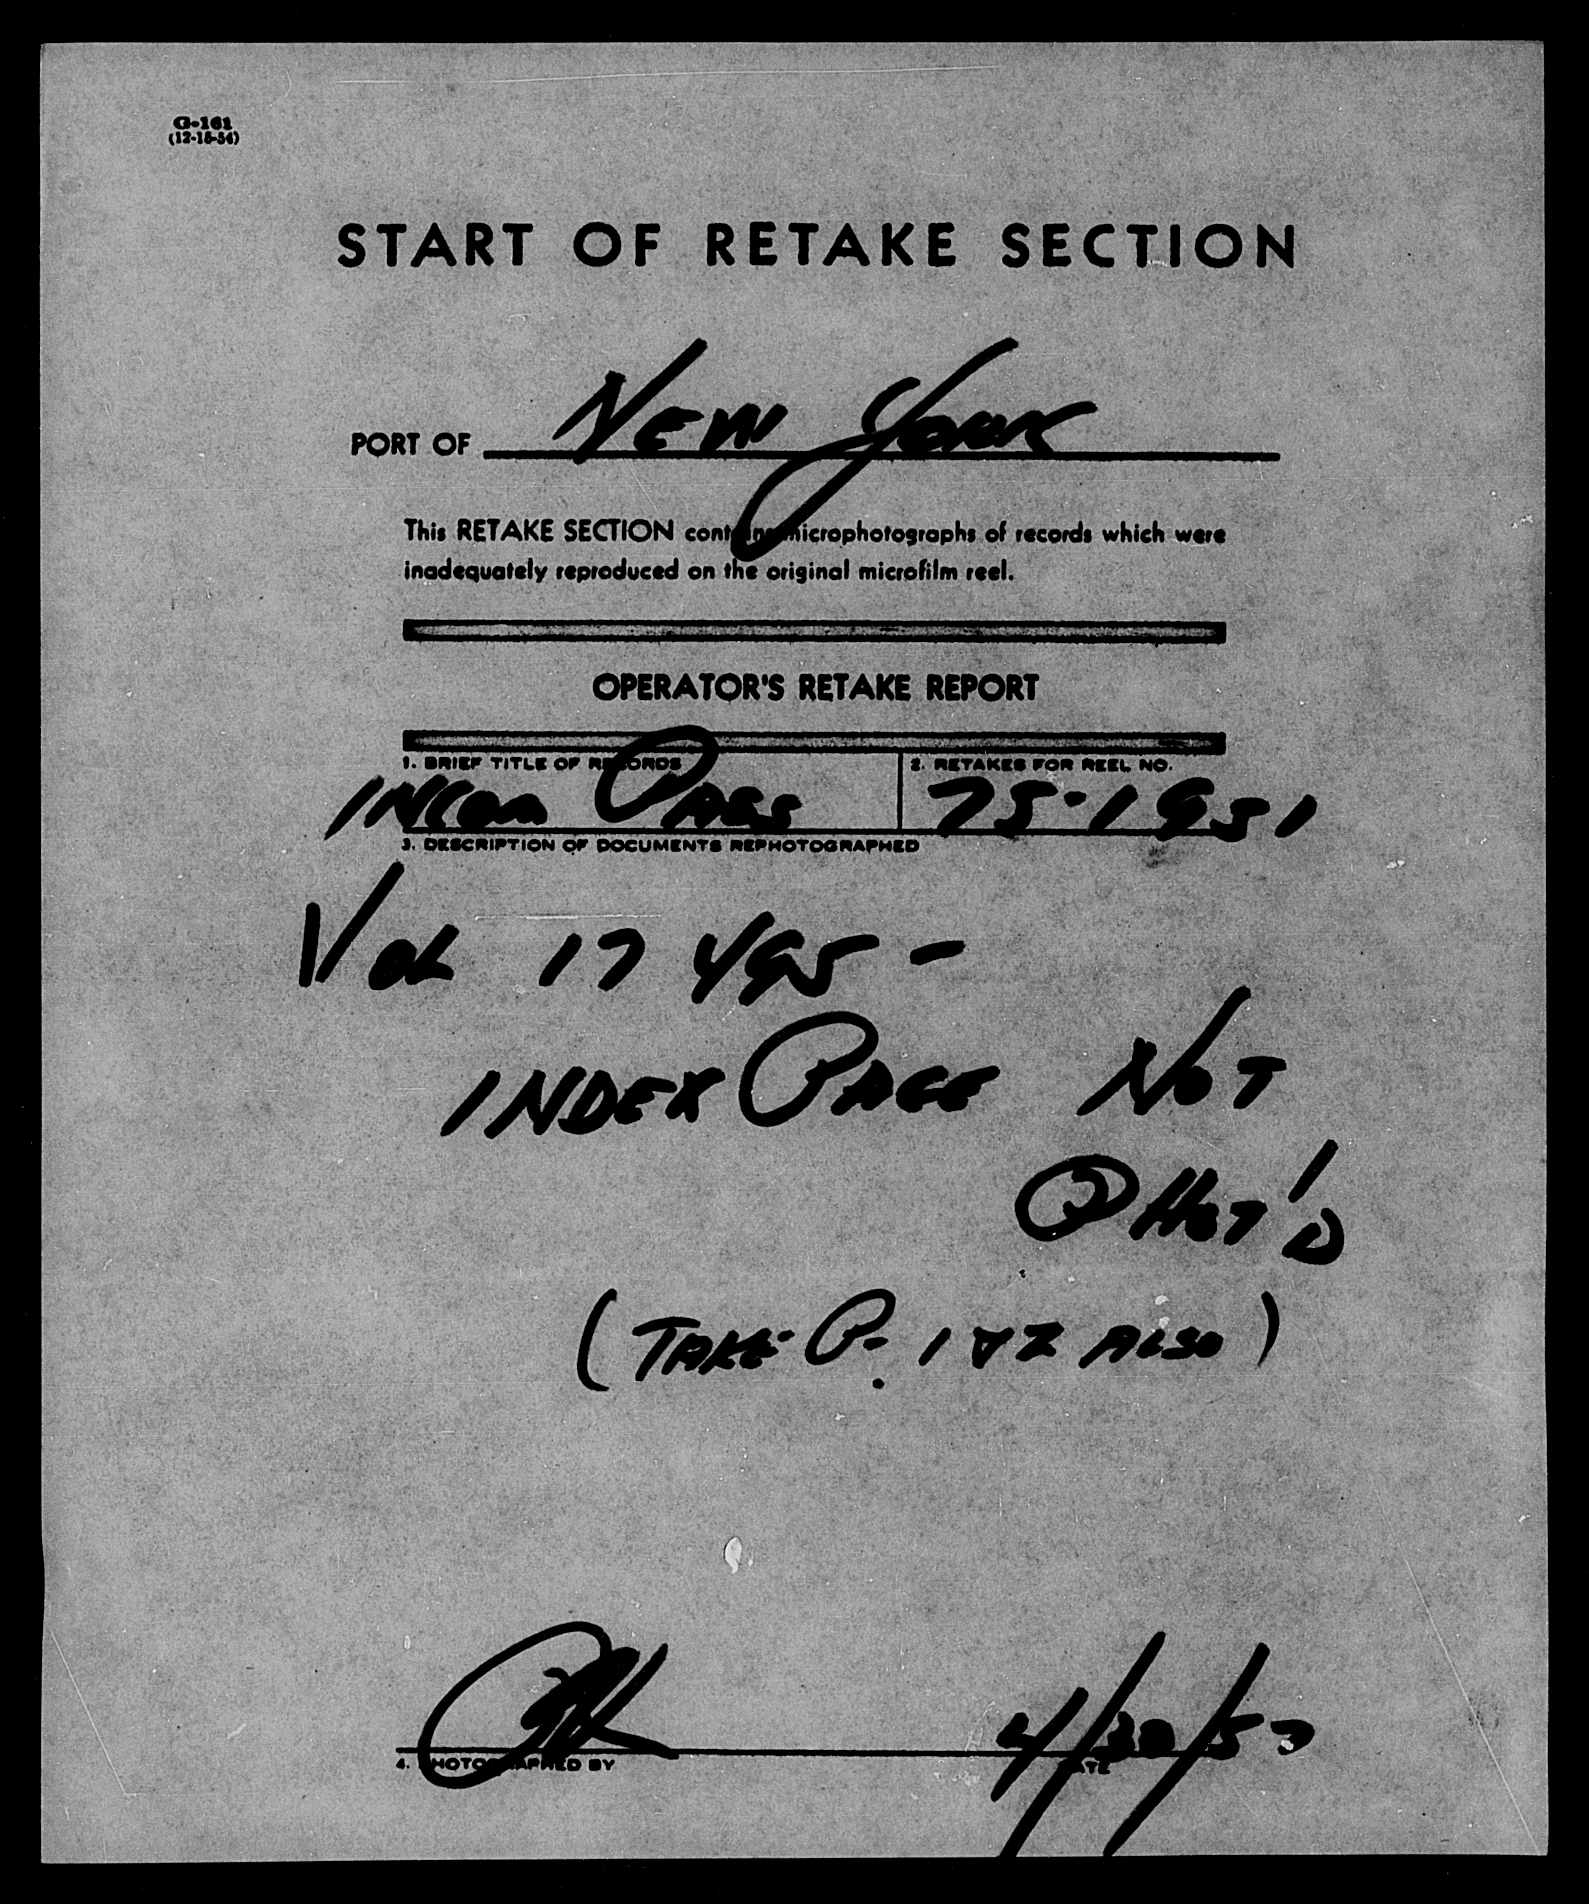 G-161
(12-15-54)
START OF RETAKE SECTION
PORT OF New York
This RETAKE SECTION contains microphotographs of records which were
inadequately reproduced on the original microfilm reel.
OPERATOR'S RETAKE REPORT
1. BRIEF TITLE OF RECORDS 2. RETAKES FOR REEL NO.
INCOM PASS 75-1951
3. DESCRIPTION OF DOCUMENTS REPHOTOGRAPHED
VOL 17495 -
INDEX PAGE NOT
PHOT'D
(TAKE P. 1 & 2 ALSO)
4/30/57
4. PHOTOGRAPHED BY DATE